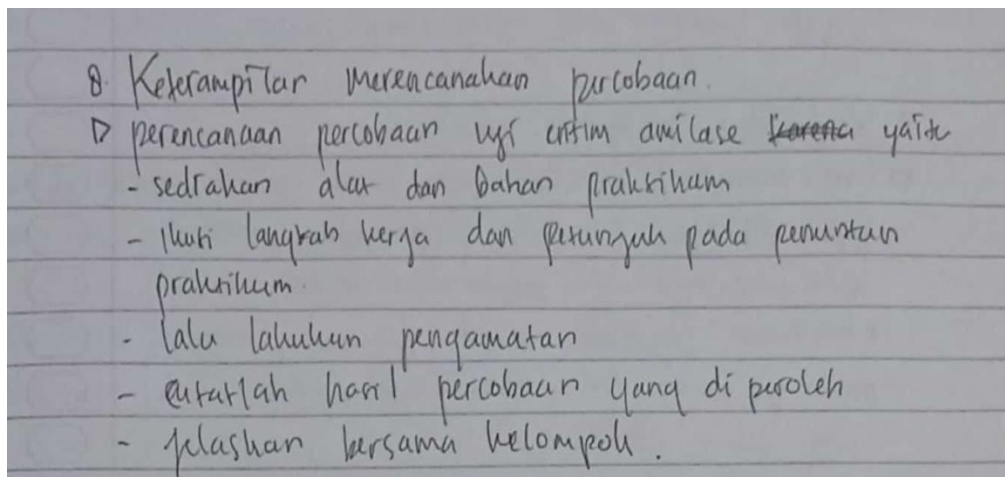 8. Keterampilan merencanakan percobaan.
▷ perencanaan percobaan uji enzim amilase karena yaitu
- sediakan alat dan bahan praktikum
- Ikuti langkah kerja dan petunjuk pada penuntun
praktikum.
- lalu lakukan pengamatan
- catatlah hasil percobaan yang di peroleh
- jelaskan bersama kelompok.